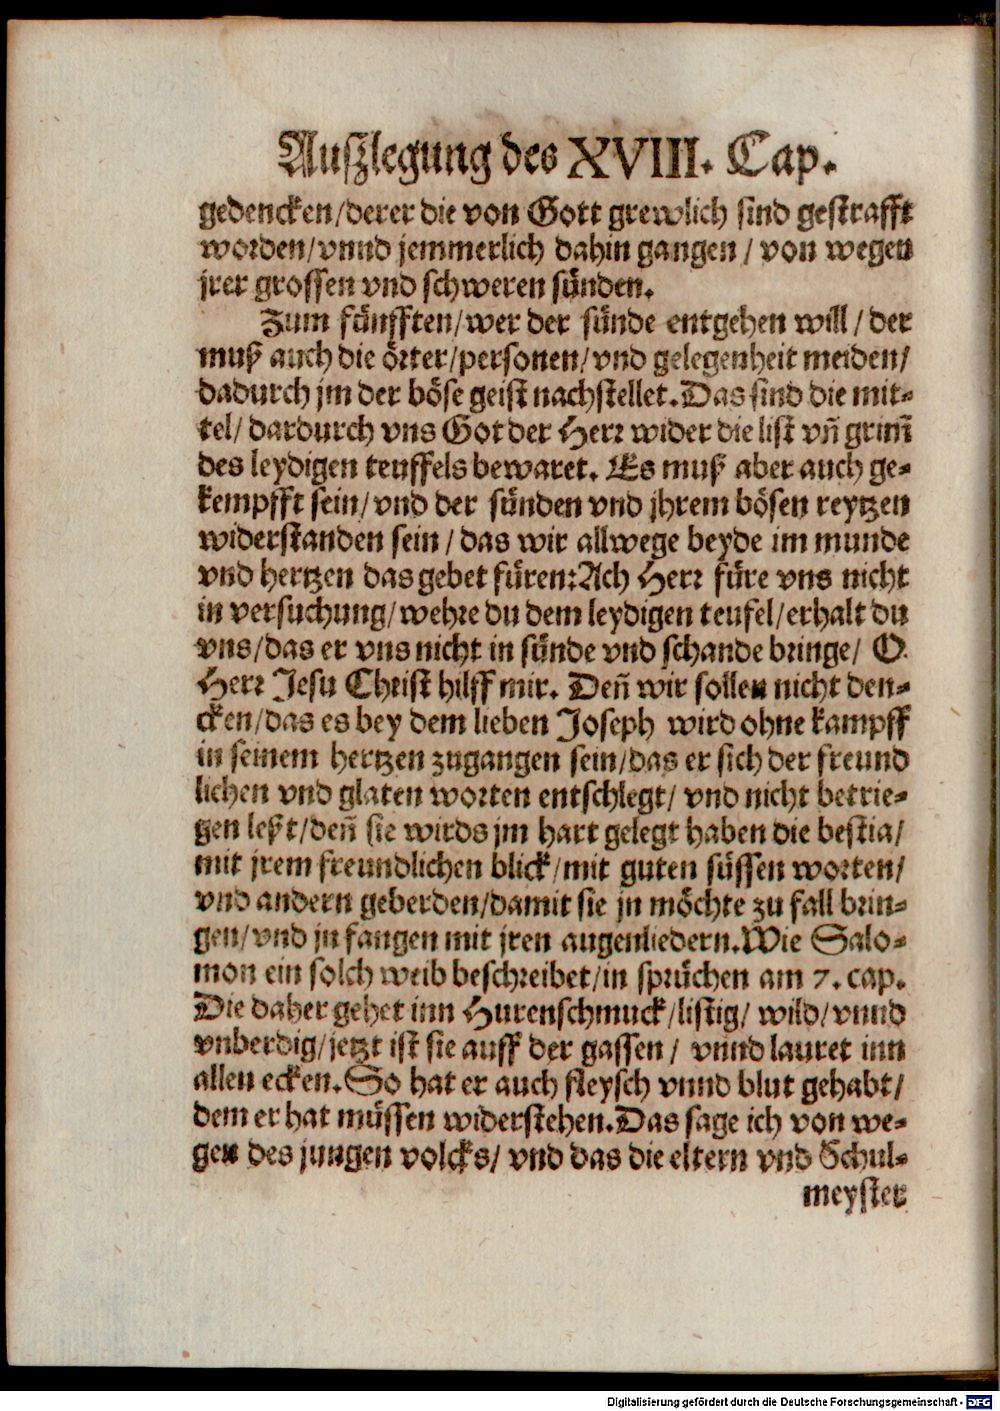 Auſzlegung des XVIII. Cap.
gedencken/derer die von Gott grewlich sind gestrafft
worden/vnnd jemmerlich dahin gangen / von wegen
jrer grossen vnd schweren sünden.
Zum fünfften/wer der sünde entgehen will / der
muß auch die örter/personen/vnd gelegenheit meiden/
dadurch jm der böse geist nachstellet. Das sind die mit-
tel/ dardurch vns Got der Herr wider die list vñ grim̃
des leydigen teuffels bewaret. Es muß aber auch ge-
kempfft sein/vnd der sünden vnd jhrem bösen reytzen
widerstanden sein / das wir allwege beyde im munde
vnd hertzen das gebet füren: Ach Herr füre vns nicht
in versuchung/wehre du dem leydigen teufel/erhalt du
vns/das er vns nicht in sünde vnd schande bringe/ O
Herr Jesu Christ hilff mir. Deñ wir sollen nicht den-
cken/das es bey dem lieben Joseph wird ohne kampff
in seinem hertzen zugangen sein/das er sich der freund
lichen vnd glaten worten entschlegt/ vnd nicht betrie-
gen leßt/deñ sie wirds jm hart gelegt haben die bestia/
mit jrem freundlichen blick/mit guten süssen worten/
vnd andern geberden/damit sie jn möchte zu fall brin-
gen/vnd jn fangen mit jren augenliedern. Wie Salo-
mon ein solch weib beschreibet/in sprüchen am 7. cap.
Die daher gehet inn Hurenschmuck/listig/ wild/vnnd
vnberdig/jetzt ist sie auff der gassen / vnnd lauret inn
allen ecken. So hat er auch fleysch vnnd blut gehabt/
dem er hat müssen widerstehen. Das sage ich von we-
gen des jungen volcks/ vnd das die eltern vnd Schul-
meyster
Digitalisierung gefördert durch die Deutsche Forschungsgemeinschaft - DFG